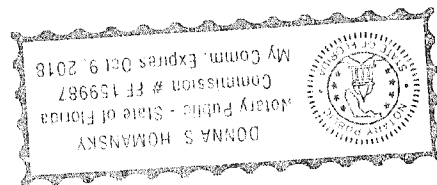 DONNA S HOMANSKY
Notary Public - State of Florida
Commission # FF 159987
My Comm. Expires Oct 9, 2018
NOTARY PUBLIC
STATE OF FLORIDA